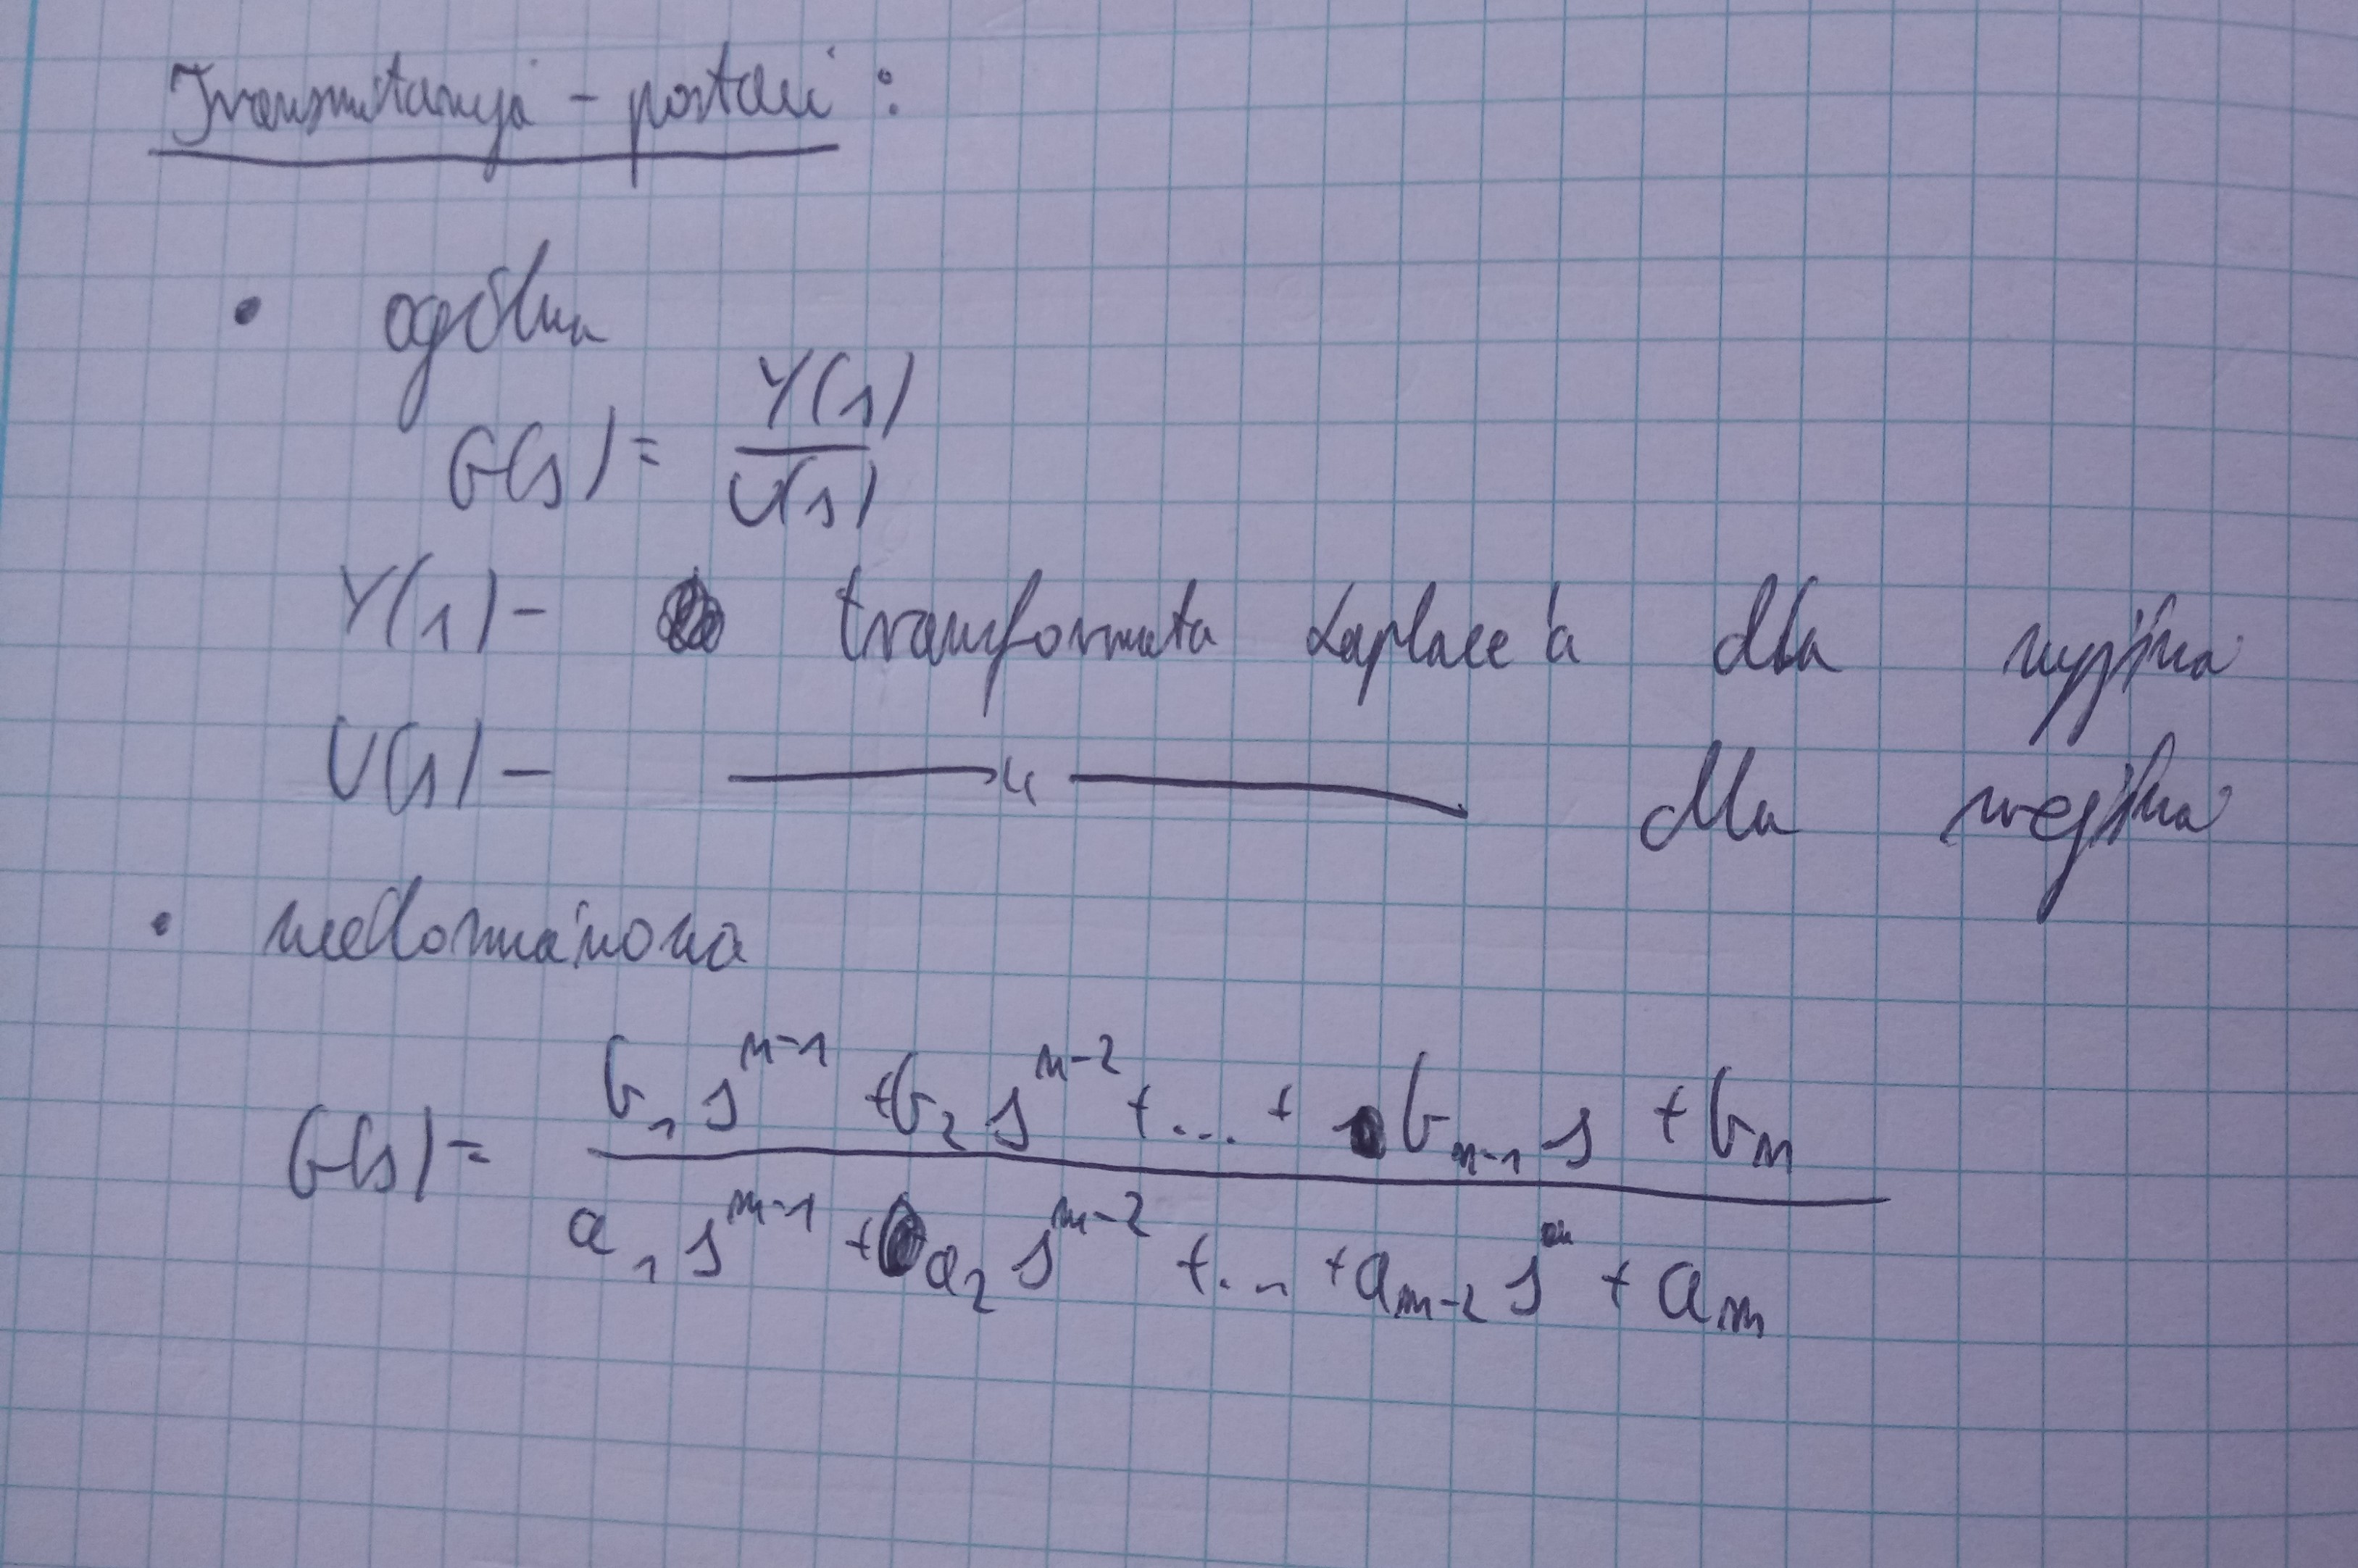 Transmitancja - postaci :
• ogólna
G(s) = Y(s) / U(s)
Y(s) - transformata Laplace'a dla wyjścia
U(s) - —— " —— dla wejścia
• wielomianowa
G(s) = (b₁ s^(n-1) + b₂ s^(n-2) + ... + bₙ₋₁ s + bₙ) / (a₁ s^(m-1) + a₂ s^(m-2) + ... + aₘ₋₂ s + aₘ)